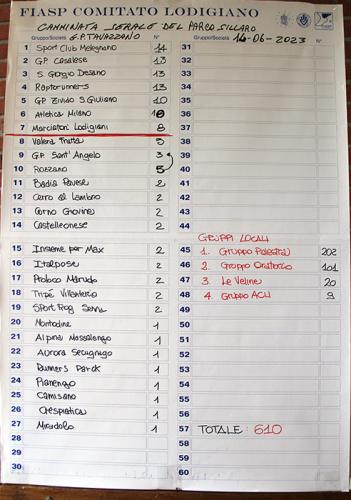 FIASP COMITATO LODIGIANO
CAMMINATA SERALE DEL PARCO SILLARO
Gruppo/Società G.P. TAVAZZANO N° Gruppo/Società 14-06-2023 N°
1 Sport Club Melegnano 14
2 G.P. Casalese 13
3 S. Giorgio Desano 13
4 Raptorunners 13
5 GP Zivido S. Giuliano 10
6 Atletica Milano 10
7 Marciatori Lodigiani 8
8 Valera Fratta 5
9 G.P. Sant' Angelo 3
10 Rozzano 5
11 Badia Pavese 2
12 Cerro al Lambro 2
13 Corno Giovine 2
14 Castelleonese 2
15 Insieme per Max 2
16 Italpose 2
17 Proloco Mairudo 2
18 Tripé Villanterio 2
19 Sport Frog Senna 2
20 Montodine 1
21 Alpini Massalengo 1
22 Aurora Seougnago 1
23 Runners Parck 1
24 Pianengo 1
25 Camisano 1
26 Crespiatica 1
27 Miradolo 1
28
29
30
31
32
33
34
35
36
37
38
39
40
41
42
43
44
GRUPPI LOCALI
45 1. Gruppo Palestra 202
46 2. Gruppo Oratorio 101
47 3 Le Veline 20
48 4 Gruppo ACLI 9
49
50
51
52
53
54
55
56
57 TOTALE: 610
58
59
60